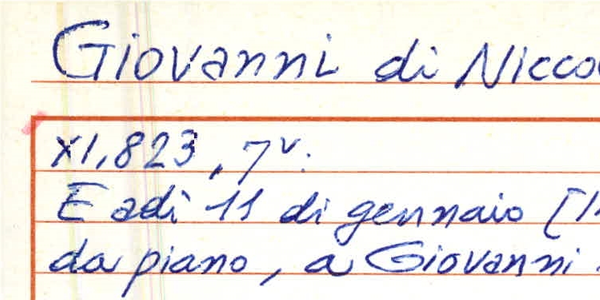 Giovanni di Nicco
XI, 823, 7v.
E adì 11 di gennaio [1
da piano, a Giovanni